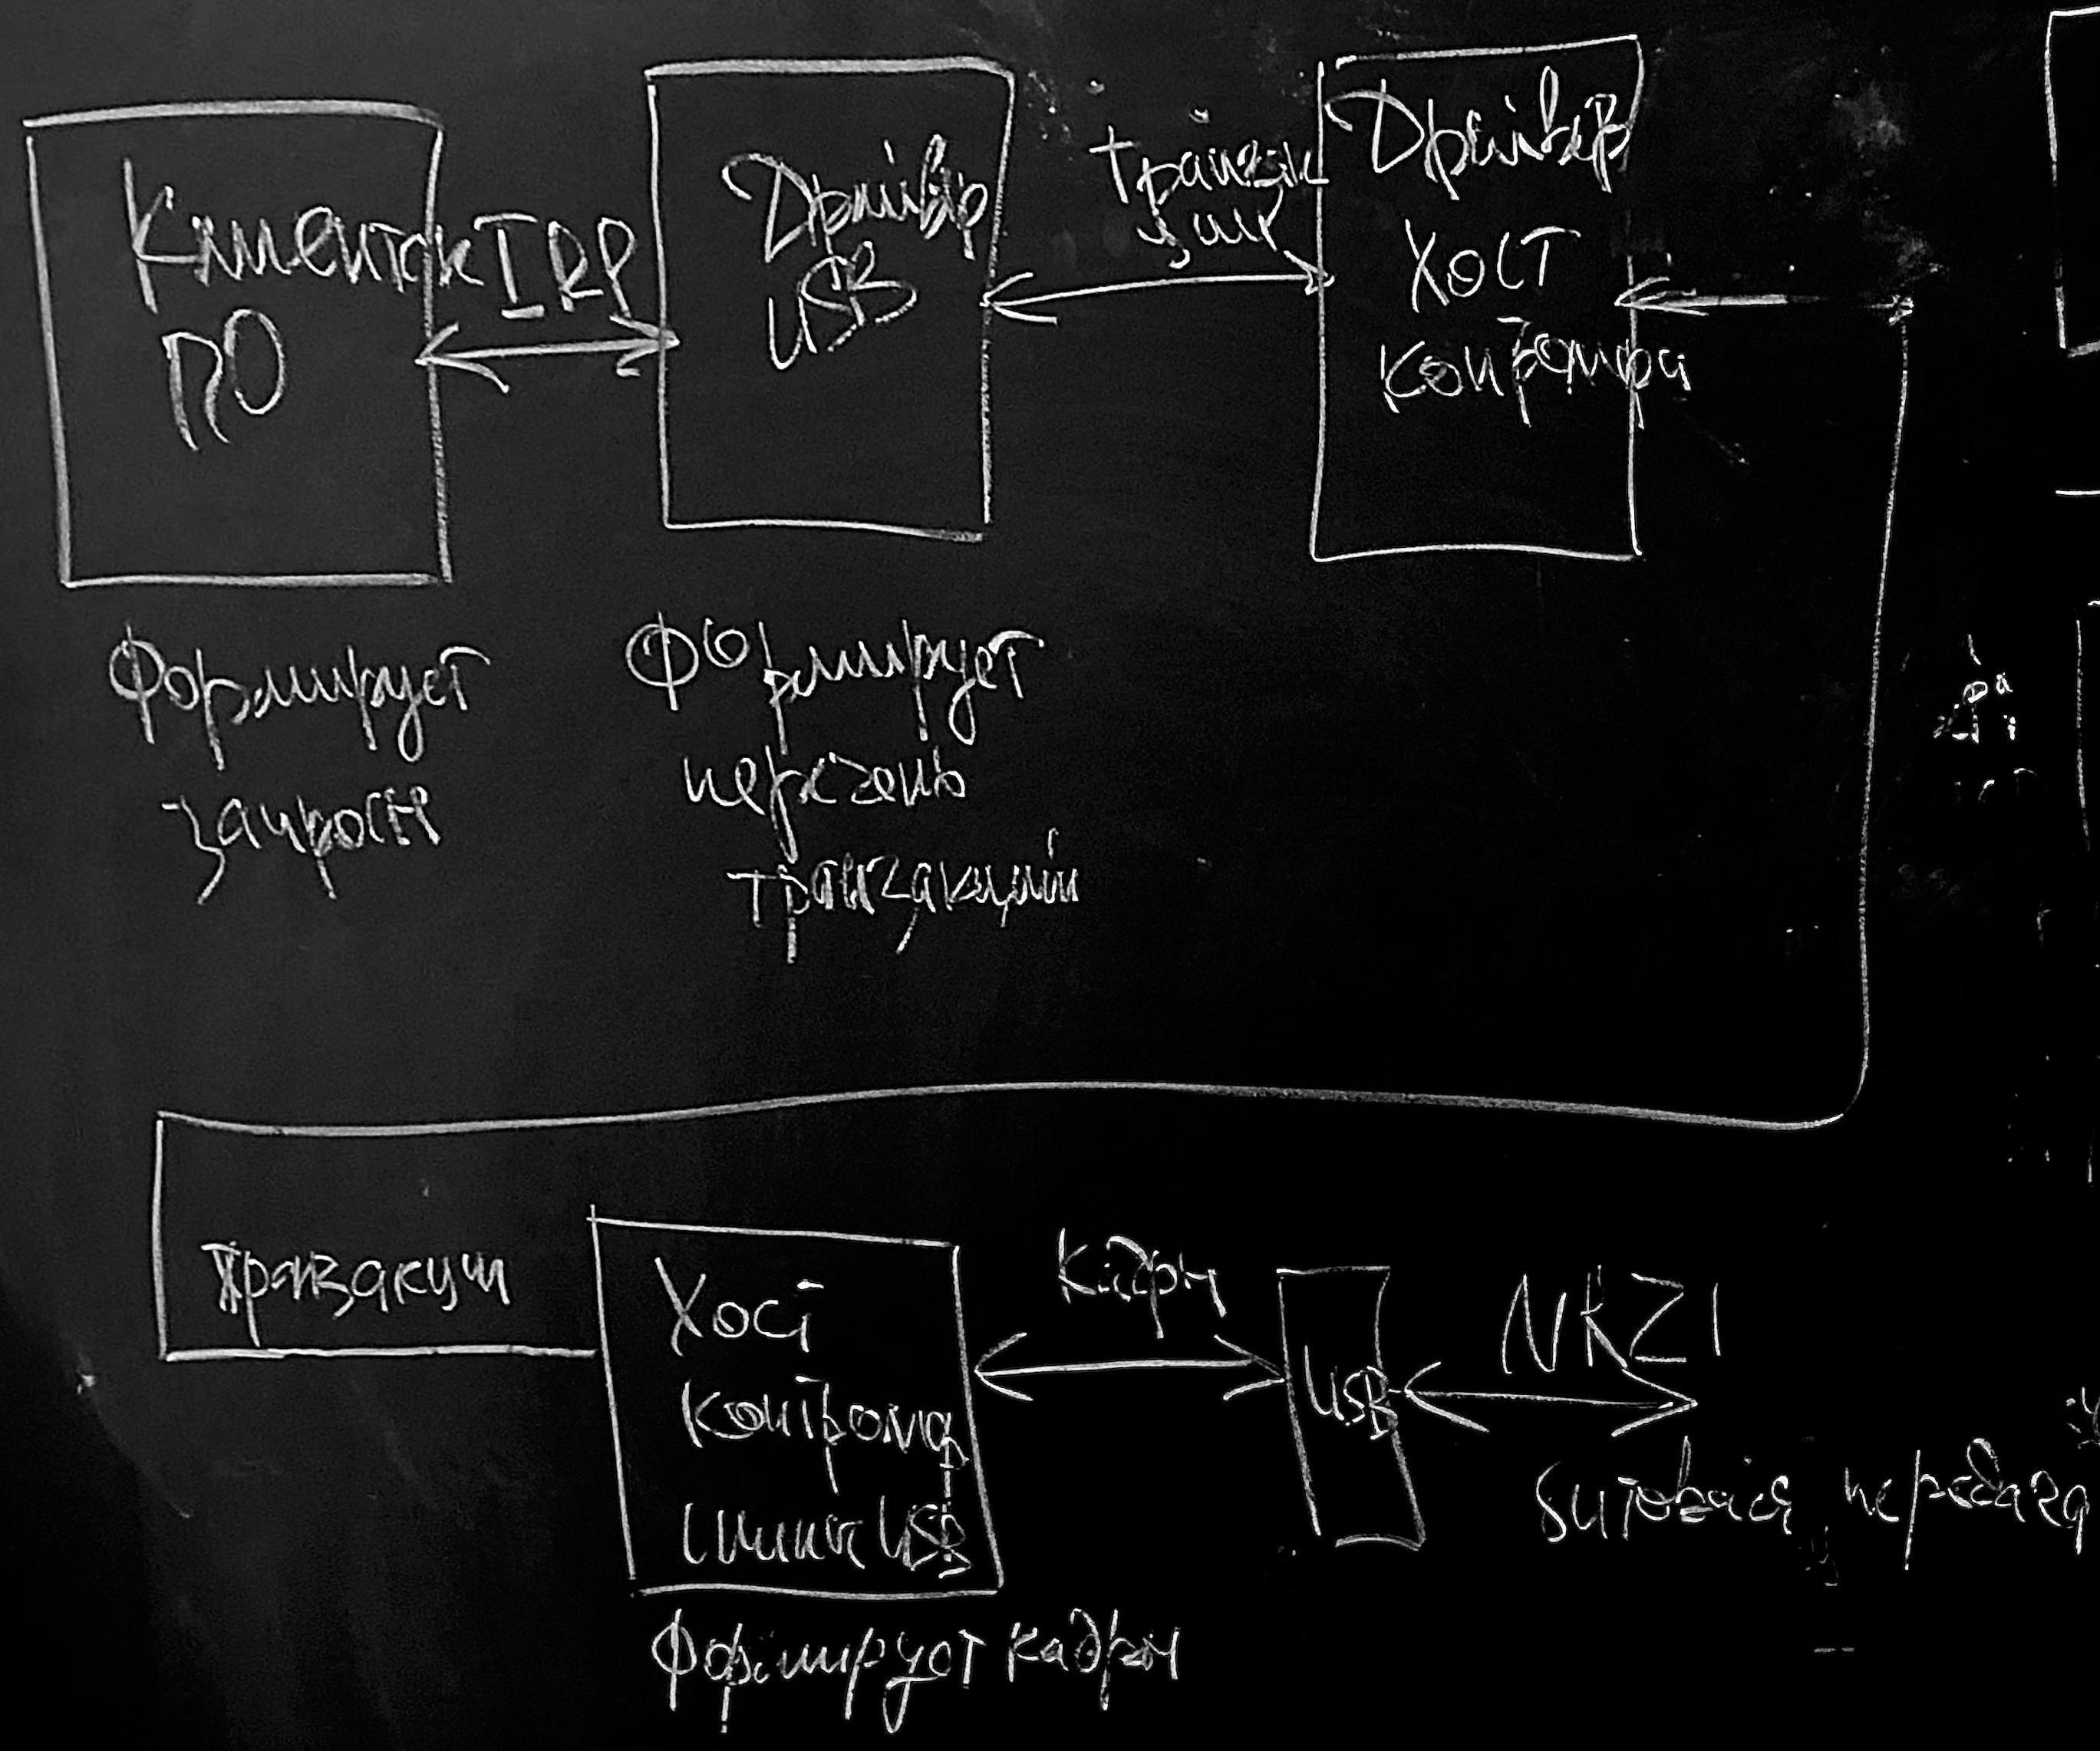 Клиентск
ПО
IRP
Драйвер
USB
транзак
ции
Драйвер
хост
контролера
Формирует
запросы
Формирует
перечень
транзакций
транзакции
Хост
контролер
шины USB
кадры
USB
NRZI
битовая передача
Формирует кадры